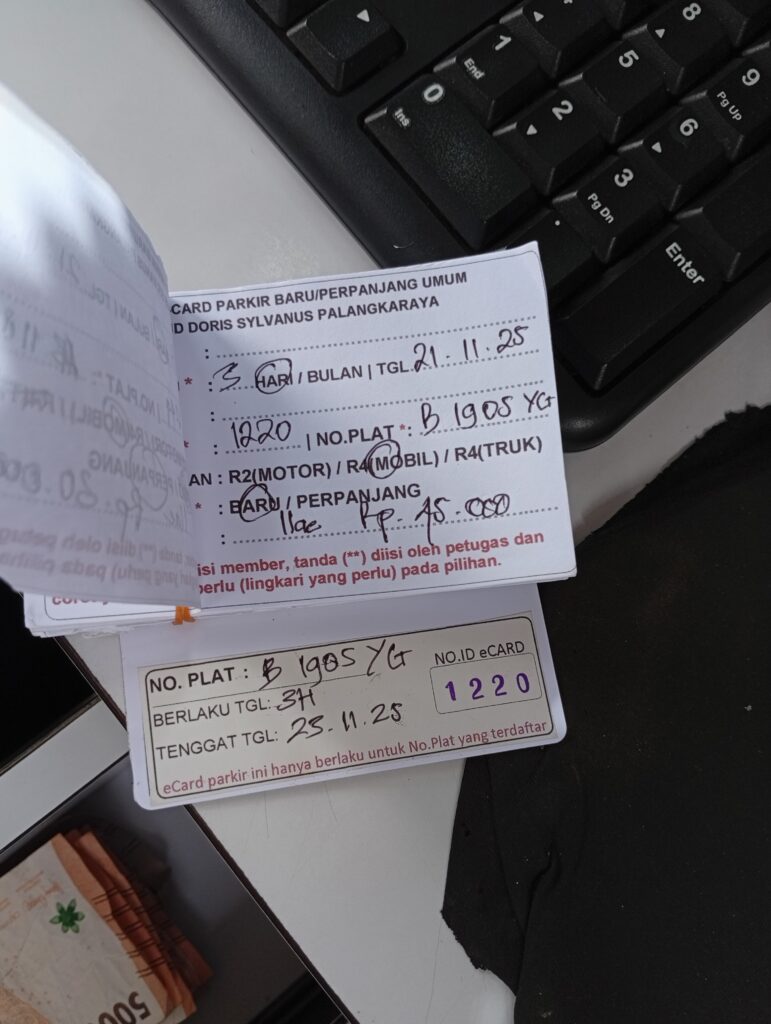 CARD PARKIR BARU/PERPANJANG UMUM
D DORIS SYLVANUS PALANGKARAYA
:
* : 3 HARI / BULAN | TGL. 21 . 11 . 25
:
* : 1220 | NO.PLAT *: B 1905 YG
AN : R2(MOTOR) / R4(MOBIL) / R4(TRUK)
* : BARU / PERPANJANG
: Rp. 45.000
isi member, tanda (**) diisi oleh petugas dan
perlu (lingkari yang perlu) pada pilihan.
NO. PLAT : B 1905 YG
NO.ID eCARD
BERLAKU TGL: 3H
1220
TENGGAT TGL: 23.11.25
eCard parkir ini hanya berlaku untuk No.Plat yang terdaftar
0
Ins
1
End
2
3
Pg Dn
5
6
8
9
Pg Up
.
Enter
500